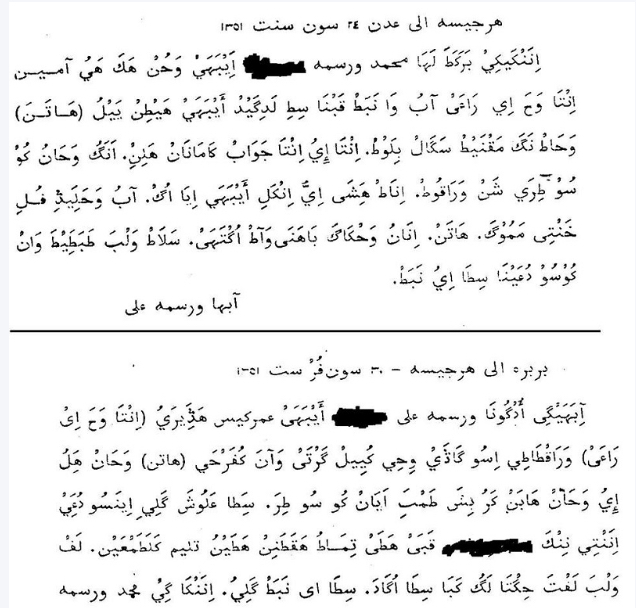 هرجيسه الى عدن ٢٤ سون سنت ١٣٥١
اِنَنْكَيكِيْ بَرَكَطَ لَهَا محمد ورسمه اَيْبَهَيْ وَحُنْ هَكَ هَيْ آمـيـن
اِنْتَا وَحَ اِي رَاعَىْ آبُ وَا نَبَطْ قَبْنَا سِطِ لَدِگَيْدُ أَيْبَهَيْ هَيْطِنْ يَيْلُ (هَـاتَـنَ)
وَحَاطْ نَگَ مَقْنَيْطْ سَكَالْ بِلَوْطْ. اِنْتَا إِيُ اِنْتَا جَوَابُ كَامَانَانْ هَنِنْ. اَنَگُ وَحَانُ كُوْ
سُوْ طِرَي شَنْ وَرَاقُوطْ. اِنَاطْ هَشَى اِيُّ اِنْكَلِ أَيْبَهَي اِيَا اُگُ. آبُ وَحَلِيَدِ فُـلِ
خَنْتِى مَمُوْگَ. هَاتَنْ. اِنَانُ وَحْكَاگُ بَاهَنَى وَآطْ اُكْتَهَىْ. سَلَاطْ وَلْبَ طَبَطِيْطَ وَانُ
كُوْسُوْ دُعَيْنَا سِطَا اِيُ نَبَطْ.
آبها ورسمه على
بربره الى هرجيسه - ٣٠ سون فُرْ ست ١٣٥١
اَبَهَيْگِى أَدْگُونَا ورسمه على أَيْبَهَىْ عمركيس هَدِّيرَيُ (اِنْتَا وَحَ اِىْ
رَاعَىْ) وَرَاقْطَاطِي اِسُو گَادَيْ وِحِي كُيِيلْ گَرْتَىْ وَآنَ كُفَرْحَي (هاتن) وَحَانُ هَلُ
إِيُ وَحَآنُ هَابَنْ كَرُ بِشَ طَمْبَ اَيَانُ كُو سُو طِرَ. سِطَا عَلُوشَ گَلِي اِينَسُو دُعَيْ
اِنَنْتِي نِنْكَ قَبَىْ هَطَىْ تِمَـاطْ هَقَطَنِنْ هَطَيْنُ تليم كَنَطَمْعَيْن. لَفْ
وَلْبَ لَفْتَ حِگْتَا لَگُ كَبَا سِطَا اُگَادَ. سِطَا اى نَبَطْ گَلِيُ. اِنَنْكَا گِيُ محمد ورسمه